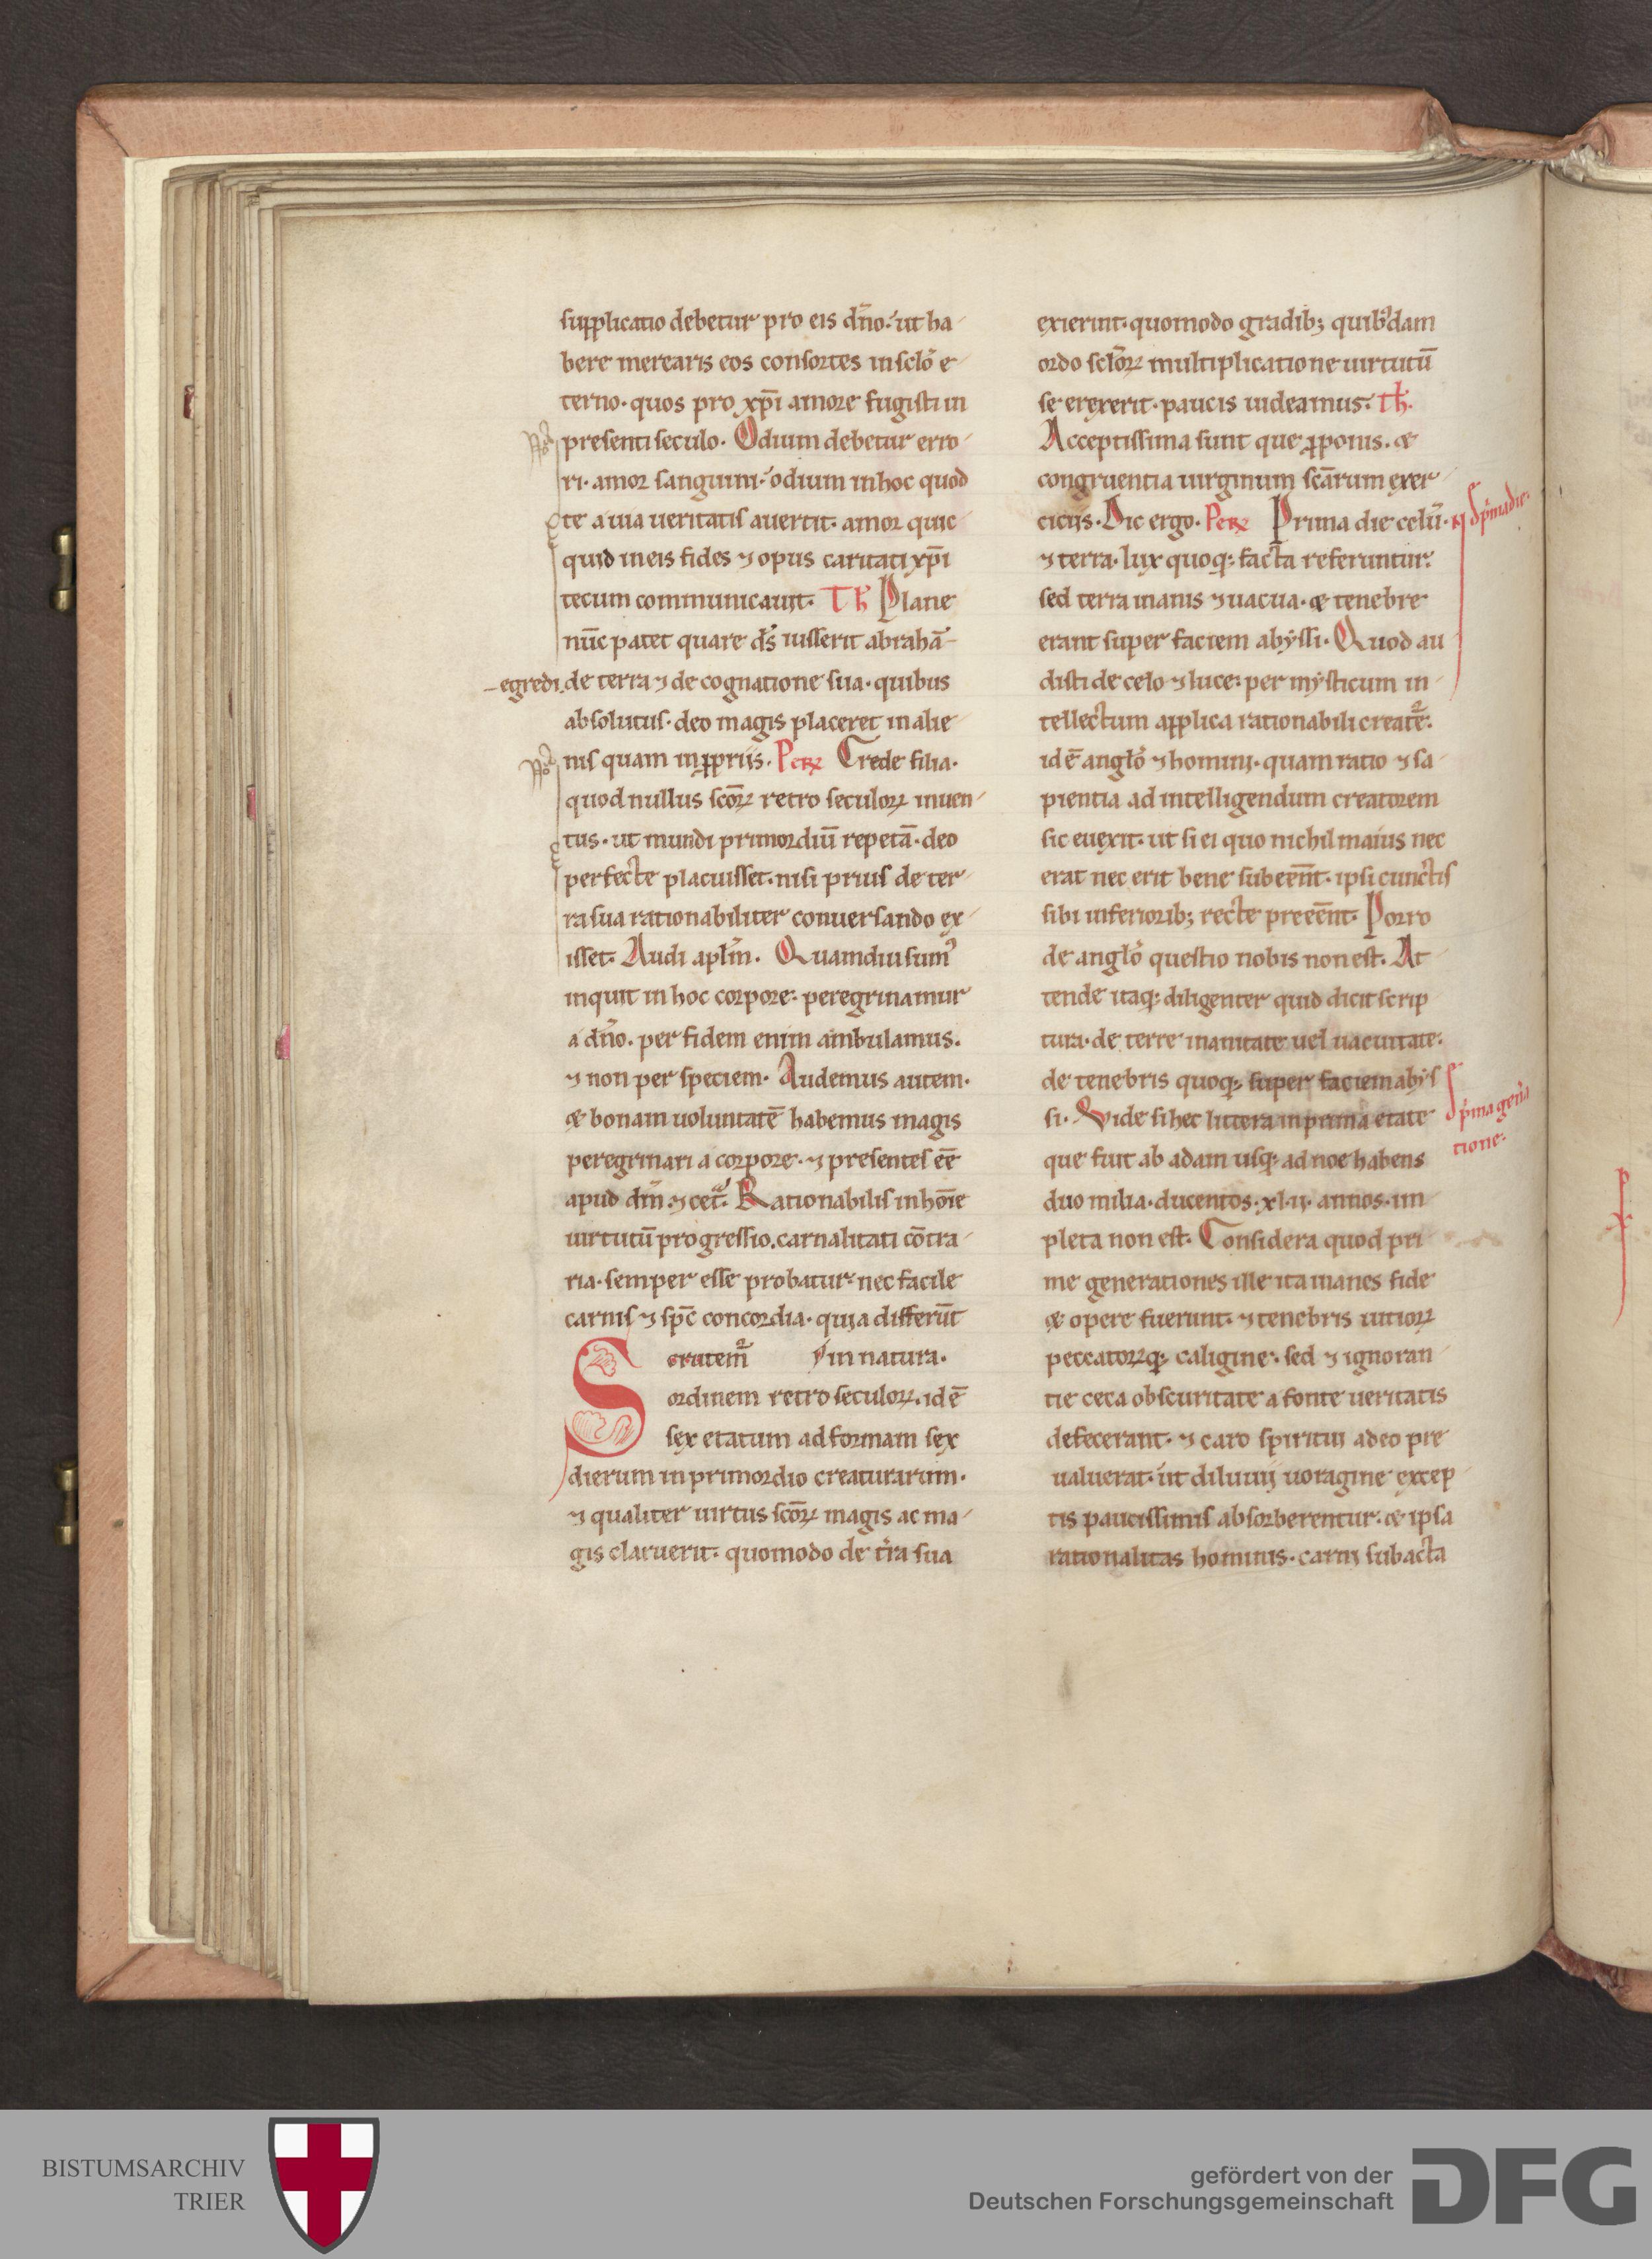 supplicatio debetur pro eis dño. ut ha
bere merearis eos consortes in sclo e
terno. quos pro xp̄i amore fugisti in
presenti seculo. Odium debetur erro
ri. amor sanguini. odium in hoc quod
te a uia ueritatis auertit. amor quic
quid in eis fides ⁊ opus caritati xp̄i
tecum communicauit. Th Plane
nūc patet quare d̄s iusserit abrahā
egredi de terra ⁊ de cognatione sua. quibus
absolutus. deo magis placeret in alie
nis quam in ꝓpriis. Pere Crede filia.
quod nullus scōꝝ retro seculoꝝ inuen
tus. ut mundi primordiū repetā. deo
perfecte placuisset. nisi prius de ter
ra sua rationabiliter conuersando ex
isset. Audi aplm̄. Quamdiu sum᷒
inquit in hoc corpore: peregrinamur
a dño. per fidem enim ambulamus.
⁊ non per speciem. Audemus autem.
& bonam uoluntatē habemus magis
peregrinari a corpore. ⁊ presentes eē
apud dm̄. ⁊ cet. Rationabilis in hoīe
uirtutū progressio. carnalitati cōtra
ria. semper esse probatur. nec facile
carnis ⁊ spc̄ concordia. quia differūt
in natura.
Scrutem᷑
ordinem retro seculoꝝ. id ē
sex etatum ad formam sex
dierum in primordio creaturarum.
⁊ qualiter uirtus scōꝝ magis ac ma
gis claruerit. quomodo de tr̄ra sua
exierint. quomodo gradib; quib᷒dam
ordo sclōꝝ multiplicatione uirtutū
se erexerit. paucis uideamus. Th.
Acceptissima sunt que ꝓponis. &
congruentia uirginum scārum exer
citiis. Dic ergo. Pere Prima die celū.
⁊ terra. lux quoq; facta referuntur.
sed terra inanis ⁊ uacua. & tenebre
erant super faciem abyssi. Quod au
disti de celo ⁊ luce: per mysticum in
tellectum applica rationabili creatē.
id ē anglo ⁊ homini. quam ratio ⁊ sa
pientia ad intelligendum creatorem
sic euexit. ut si ei quo nichil maius nec
erat nec erit bene subeēnt. ipsi cunctis
sibi inferiorib; recte preeēnt. Porro
de anglo questio nobis non est. At
tende itaq; diligenter quid dicit scrip
tura. de terre inanitate uel uacuitate.
de tenebris quoq; super faciem abys
si. Vide si hec littera in prima etate
que fuit ab adam usq; ad noe habens
duo milia. ducentos. xl. ii. annos. im
pleta non est. Considera quod pri
me generationes ille ita inanes fide
& opere fuerunt. ⁊ tenebris uitioꝝ
peccatoꝝq; caligine. sed ⁊ ignoran
tie ceca obscuritate a fonte ueritatis
defecerant. ⁊ caro spiritui adeo pre
ualuerat. ut diluuii uoragine excep
tis paucissimis absorberentur. & ipsa
rationalitas hominis. carni subacta
prima die.
prima gen̄a
tione.
BISTUMSARCHIV
TRIER
gefördert von der
Deutschen Forschungsgemeinschaft
DFG